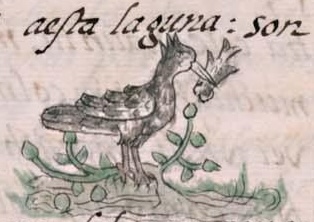 aesta laguna: son